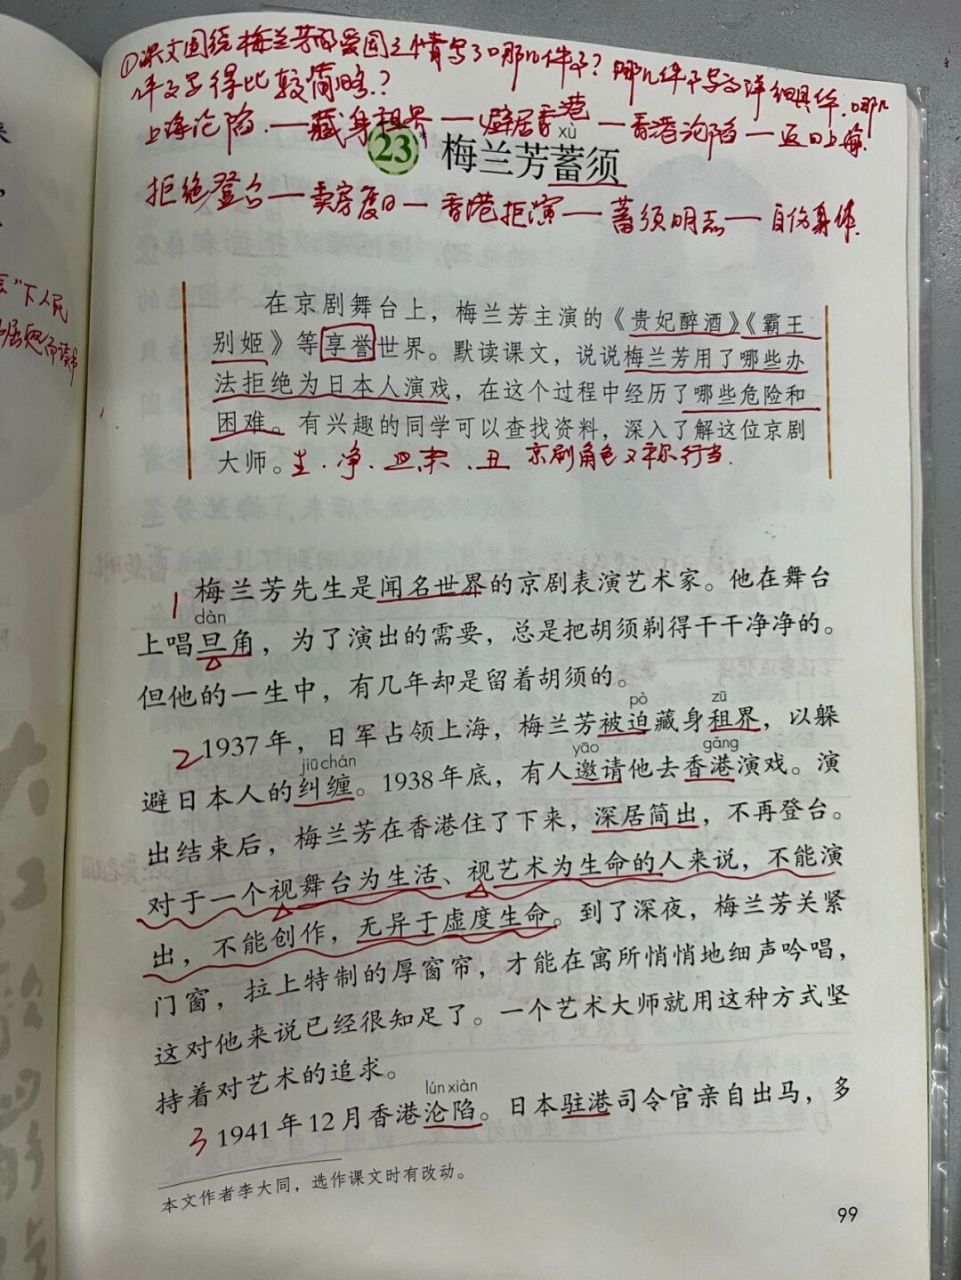 ①课文围绕梅兰芳的爱国之情写了哪几件事？哪几件事写得详细具体，哪几
件事写得比较简略？
上海沦陷——藏身租界——避居香港——香港沦陷——返回上海
xù
23* 梅兰芳蓄须
拒绝登台——卖房度日——香港拒演——蓄须明志——自伤身体
在京剧舞台上，梅兰芳主演的《贵妃醉酒》《霸王
别姬》等享誉世界。默读课文，说说梅兰芳用了哪些办
法拒绝为日本人演戏，在这个过程中经历了哪些危险和
困难。有兴趣的同学可以查找资料，深入了解这位京剧
大师。生、净、旦、末、丑 京剧角色又称行当.
下人民
1 梅兰芳先生是闻名世界的京剧表演艺术家。他在舞台
dàn
上唱旦角，为了演出的需要，总是把胡须剃得干干净净的。
但他的一生中，有几年却是留着胡须的。
pò zū
2 1937年，日军占领上海，梅兰芳被迫藏身租界，以躲
jiū chán yāo gǎng
避日本人的纠缠。1938年底，有人邀请他去香港演戏。演
出结束后，梅兰芳在香港住了下来，深居简出，不再登台。
对于一个视舞台为生活、视艺术为生命的人来说，不能演
出，不能创作，无异于虚度生命。到了深夜，梅兰芳关紧
门窗，拉上特制的厚窗帘，才能在寓所悄悄地细声吟唱，
这对他来说已经很知足了。一个艺术大师就用这种方式坚
持着对艺术的追求。
lún xiàn
3 1941年12月香港沦陷。日本驻港司令官亲自出马，多
本文作者李大同，选作课文时有改动。
99